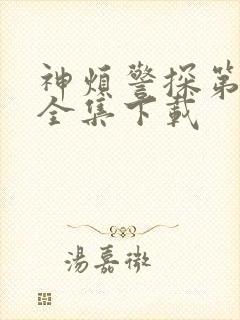 神煩警探第
全集下載
湯嘉微